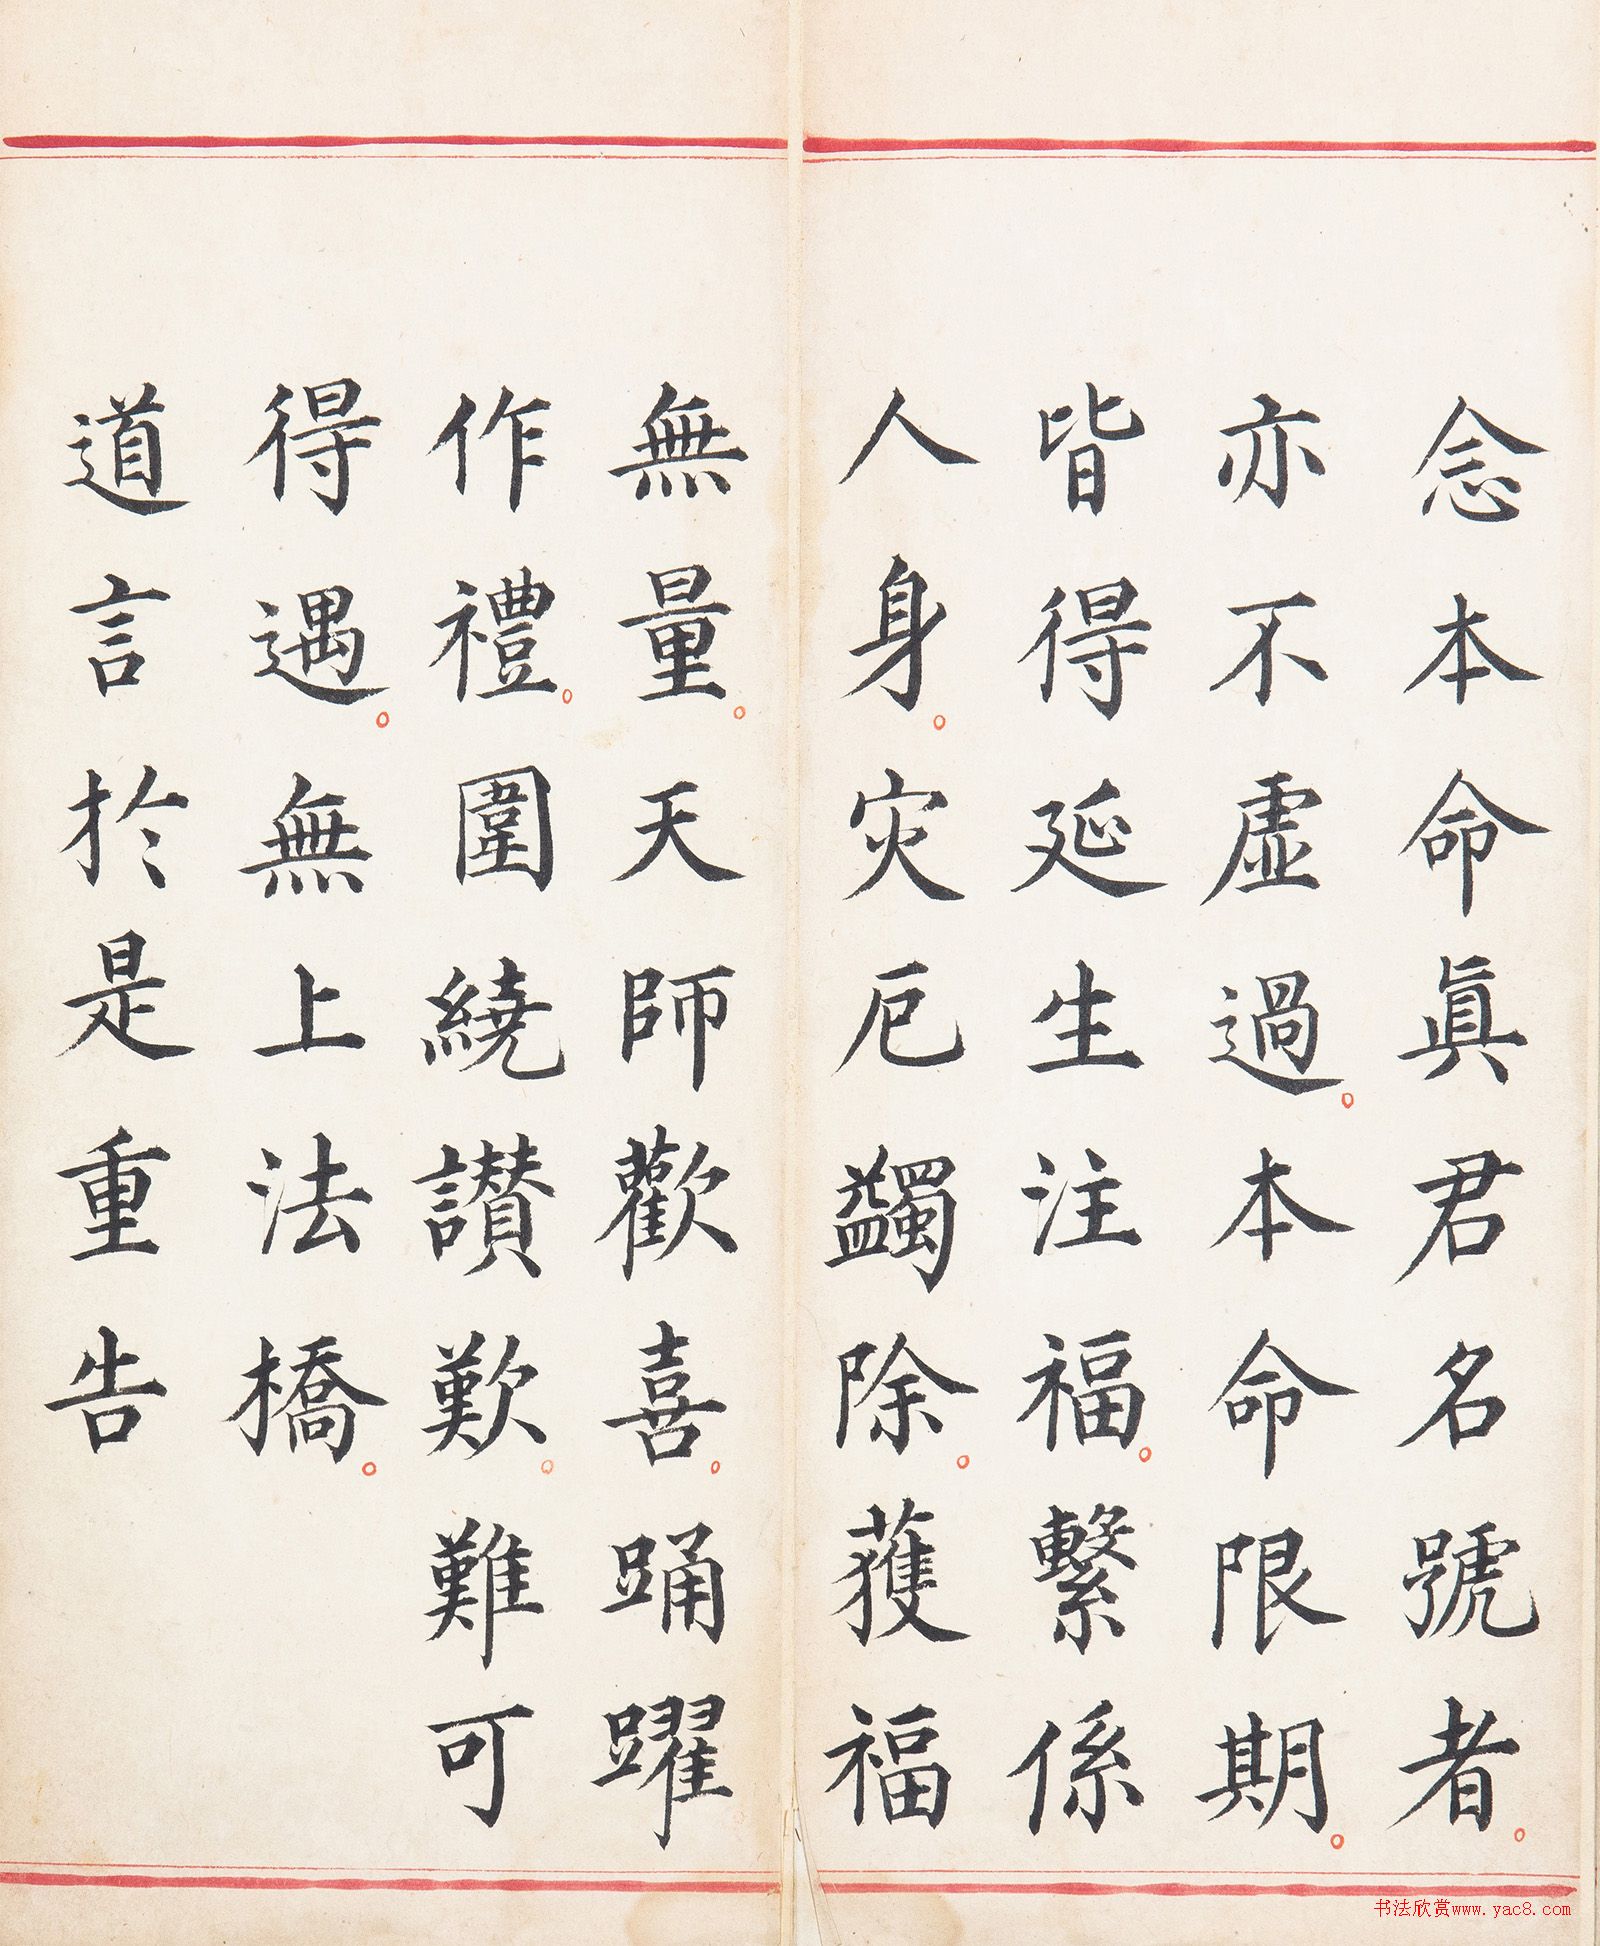 念本命眞君名號者。
亦不虛過。本命限期。
皆得延生注福。繫係
人身。灾厄蠲除。獲福
無量。天師歡喜。踴躍
作禮。圍繞讃歎。難可
得遇。無上法橋。
道言於是重告
书法欣赏www.yac8.com